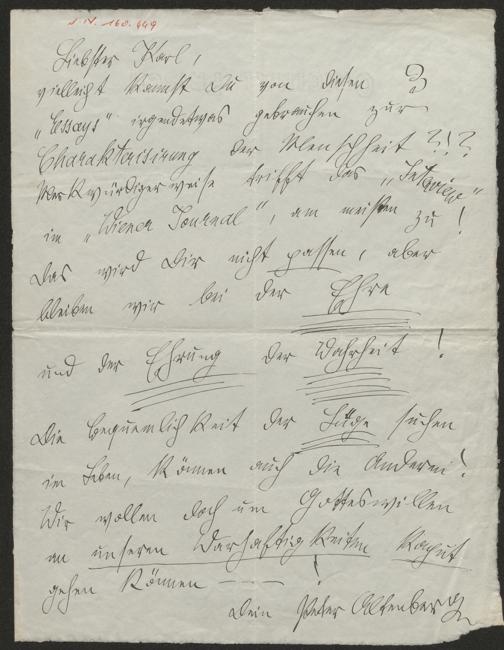 J. N. 160.449
Liebster Karl,
vielleicht kannst Du von diesen 3
„Essays" irgendetwas gebrauchen zur
Charakterisirung der Menschheit ?!?
Merkwürdigerweise trifft das „Interview"
im „Wiener Journal", am meisten zu!
Das wird Dir nicht passen, aber
bleiben wir bei der Ehre
und der Ehrung der Wahrheit!
Die Bequemlichkeit der Lüge suchen
im Leben, können auch die Anderen!
Wir wollen doch um Gotteswillen
an unseren Warhaftigkeiten kaput
gehen können — — !
Dein Peter Altenberg